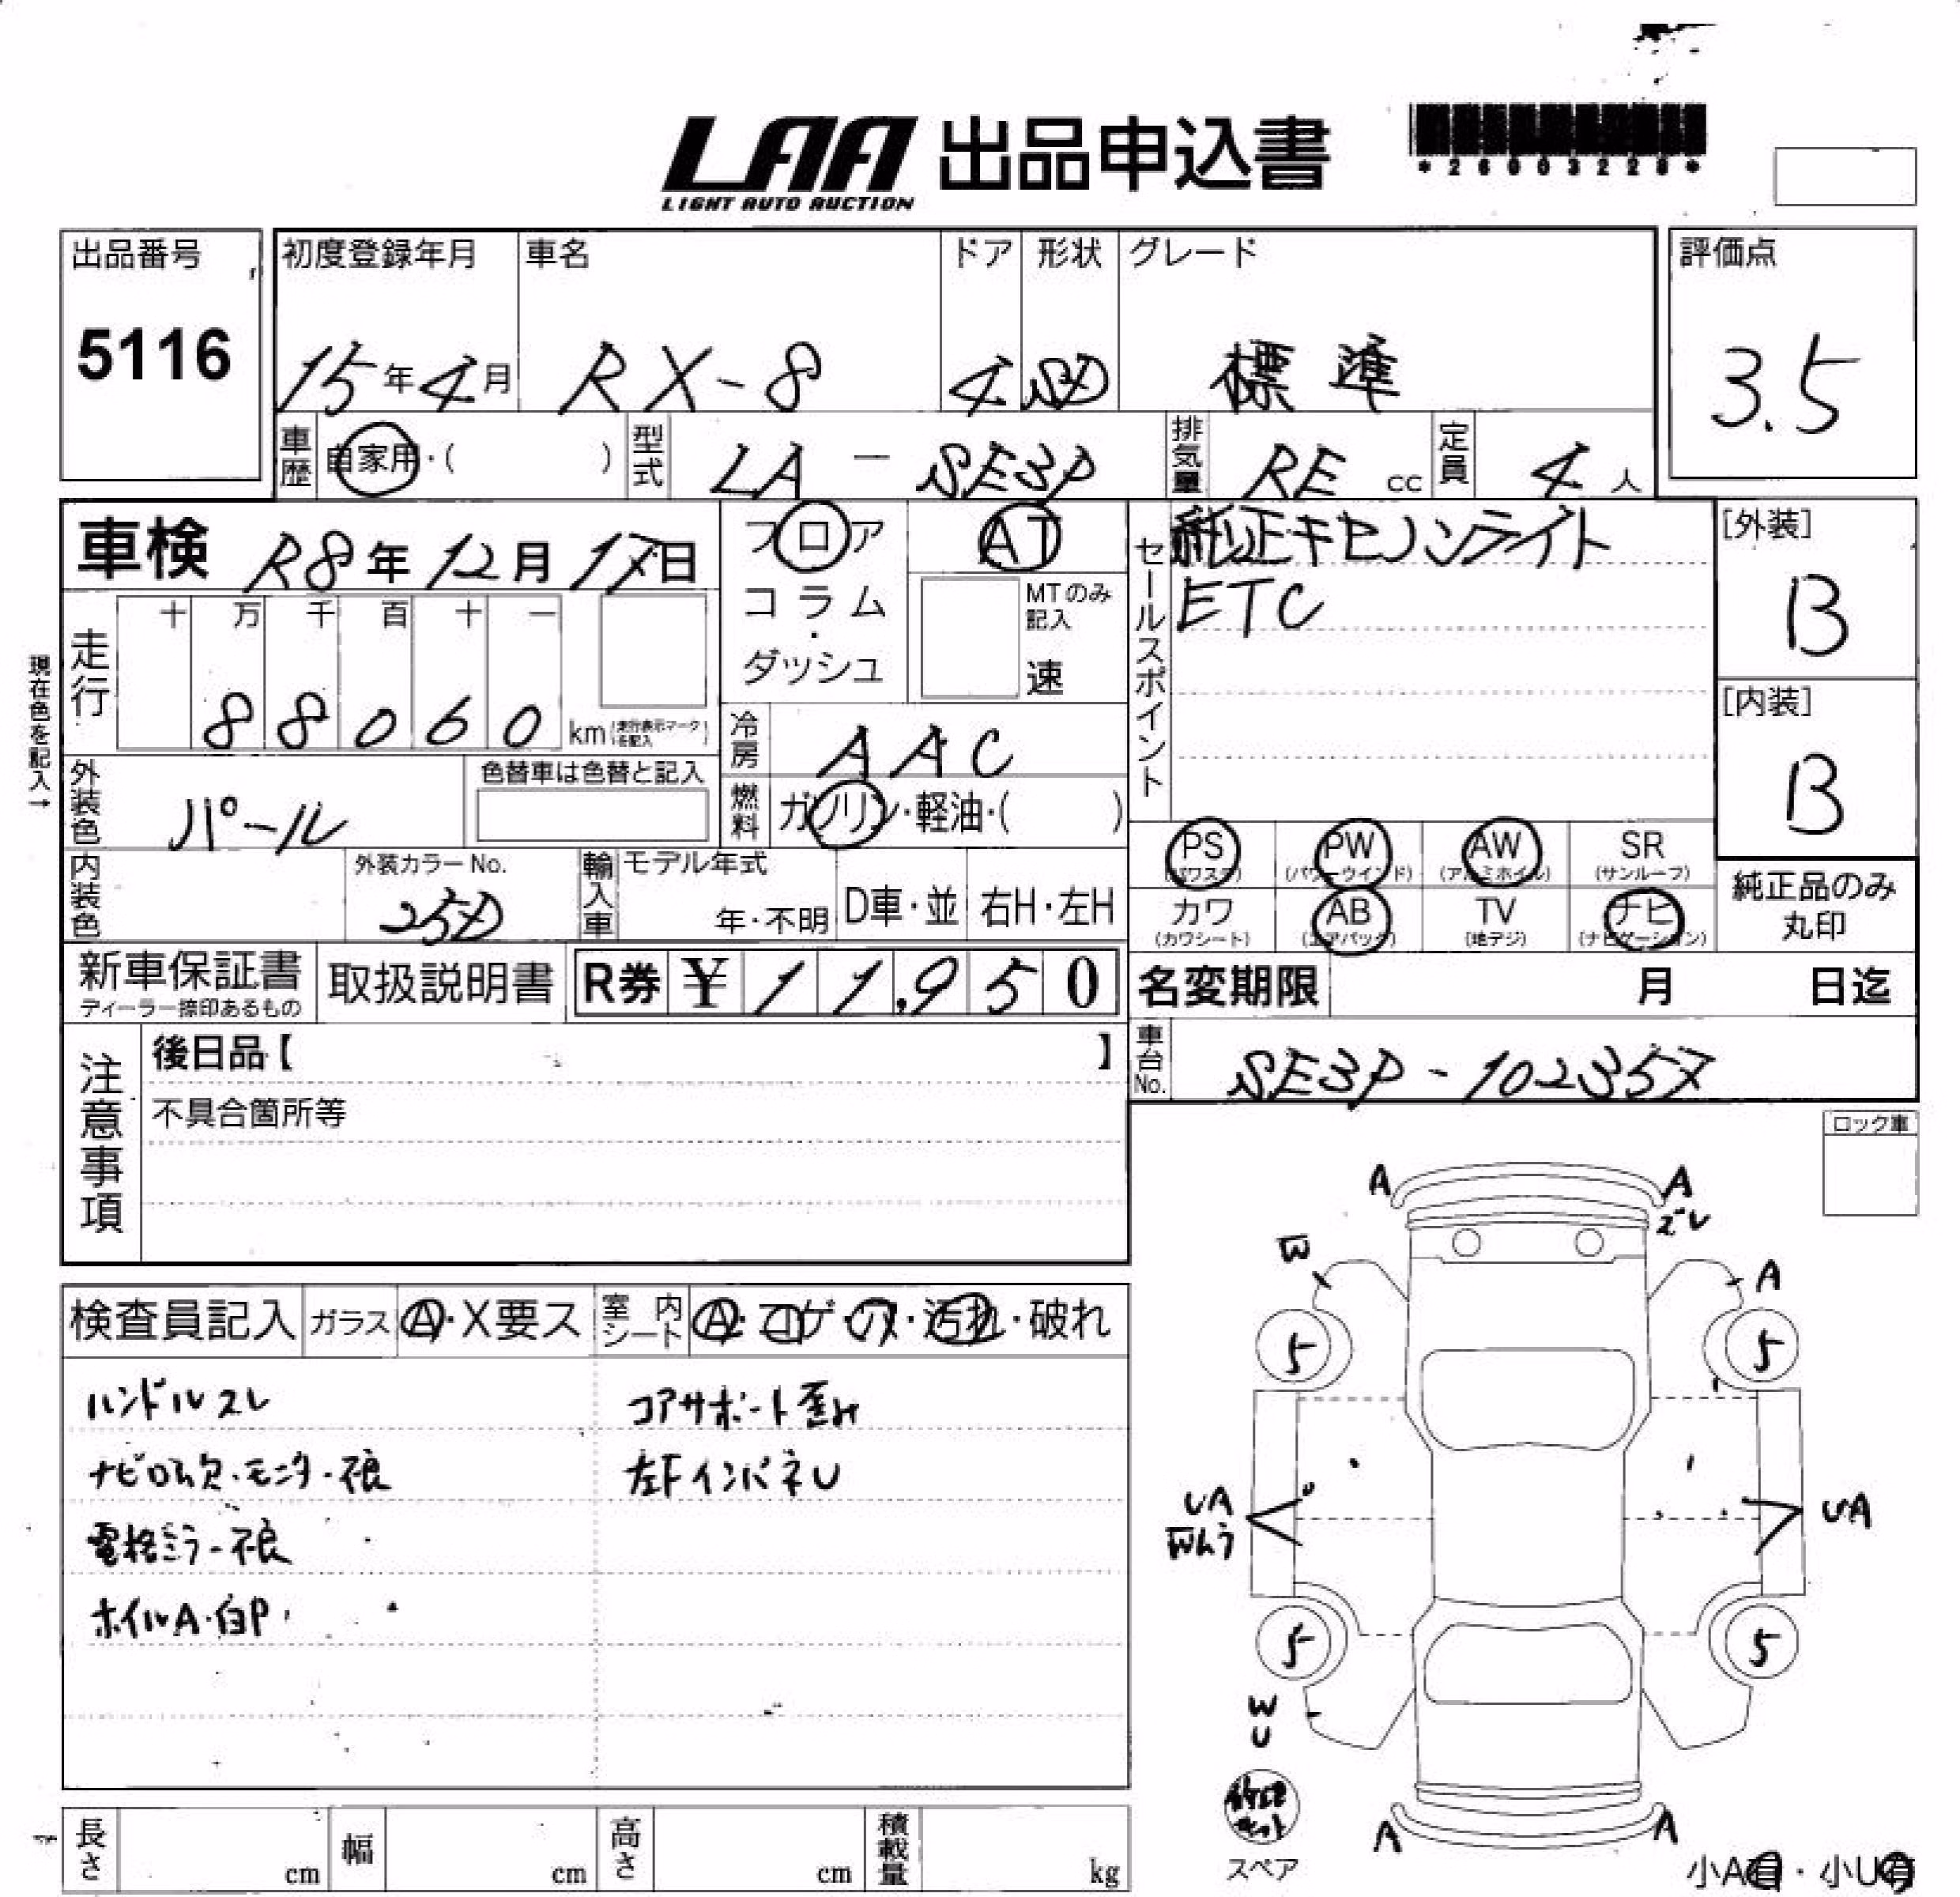 LAA 出品申込書
LIGHT AUTO AUCTION
*26003228*
出品番号
5116
初度登録年月
15年4月
車名
RX-8
ドア
4
形状
SD
グレード
標準
評価点
3.5
車歴
自家用・( )
型式
LA - SE3P
排気量
RE cc
定員
4人
車検 R8年12月17日
フロア
コラム
・
ダッシュ
AT
MTのみ
記入
速
セールスポイント
純正キセノンライト
ETC
[外装]
B
[内装]
B
現在色を記入→
走行
十 万 千 百 十 一
8 8 0 6 0
km(走行表示マークを記入)
冷房
AAC
燃料
ガソリン・軽油・( )
外装色
パール
色替車は色替と記入
内装色
外装カラーNo.
25D
輸入車
モデル年式
年・不明
D車・並
右H・左H
PS
(パワステ)
PW
(パワーウインド)
AW
(アルミホイル)
SR
(サンルーフ)
カワ
(カワシート)
AB
(エアバック)
TV
(地デジ)
ナビ
(ナビゲーション)
純正品のみ
丸印
新車保証書
ディーラー捺印あるもの
取扱説明書
R券 ¥ 11,950
名変期限 月 日迄
車台No.
SE3P-102357
注意事項
後日品【 】
不具合箇所等
ロック車
検査員記入
ガラス
A・X要ス
室内シート
A・コゲ・穴・汚れ・破れ
ハンドルスレ
コアサポート歪み
ナビロム欠・モニター不良
左FインパネU
電格ミラー不良
ホイルA・白P
A
A
ズレ
W
A
5
5
UA
UA
5
5
W
U
修理
キット
スペア
A
A
小A有・小U有
長さ cm
幅 cm
高さ cm
積載量 kg